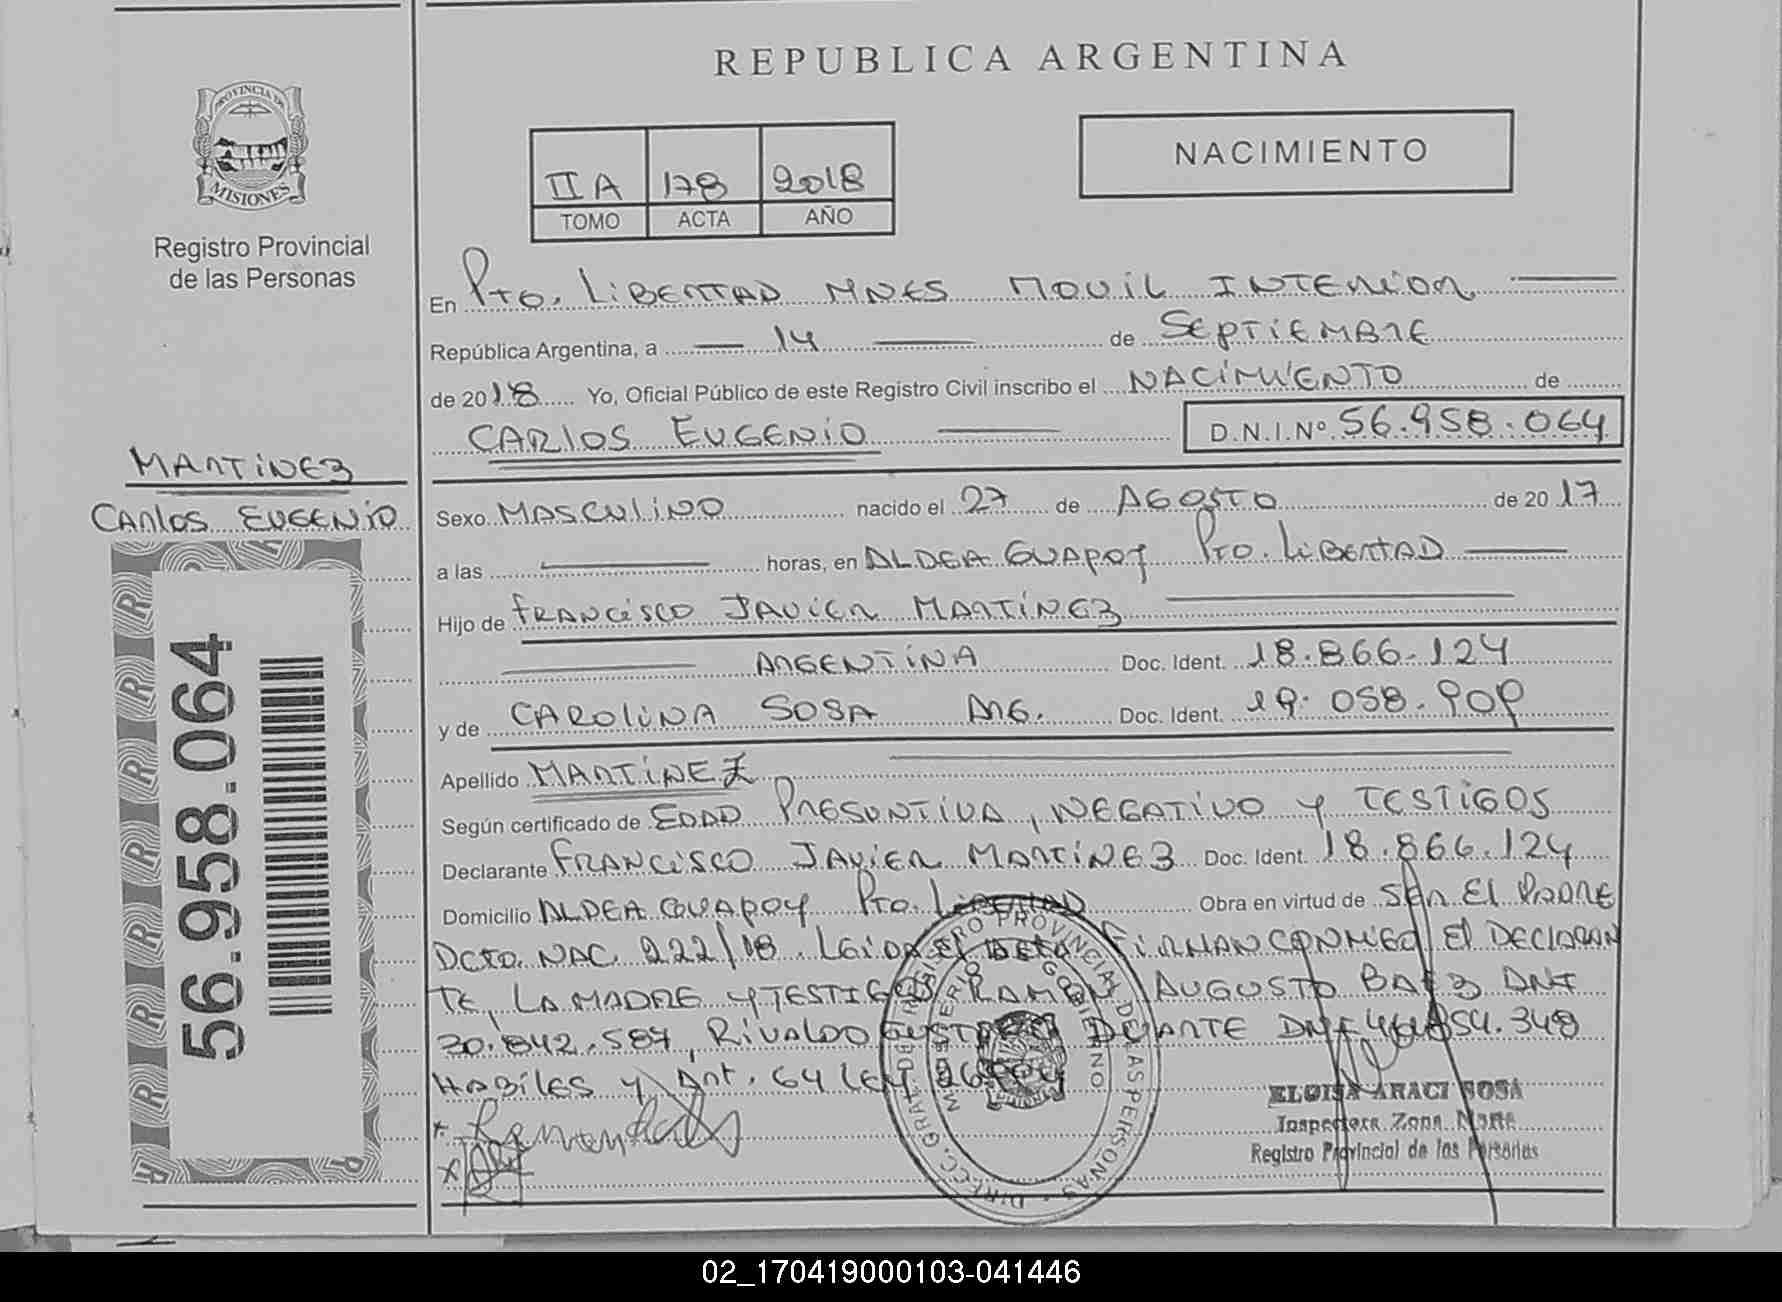 REPUBLICA ARGENTINA
PROVINCIA DE
MISIONES
Registro Provincial
de las Personas
NACIMIENTO
II A 178 2018
TOMO ACTA AÑO
En Pto. LIBERTAD MNES MOVIL INTERIOR
República Argentina, a 14 de SEPTIEMBRE
de 2018 Yo, Oficial Público de este Registro Civil inscribo el NACIMIENTO de
CARLOS EUGENIO D.N.I. Nº 56.958.064
MARTINEZ
CARLOS EUGENIO
Sexo MASCULINO nacido el 27 de AGOSTO de 2017
a las horas, en ALDEA GUAPOY Pto. LIBERTAD
Hijo de FRANCISCO JAVIER MARTINEZ
ARGENTINA Doc. Ident. 18.866.124
y de CAROLINA SOSA ARG. Doc. Ident. 19.058.909
Apellido MARTINEZ
Según certificado de EDAD PRESUNTIVA, NEGATIVO y TESTIGOS
Declarante FRANCISCO JAVIER MARTINEZ Doc. Ident. 18.866.124
Domicilio ALDEA GUAPOY Pto. LIBERTAD Obra en virtud de SER EL PADRE
DCTO. NAC. 222/18. LEIDA EL ACTA FIRMAN CONMIGO EL DECLARAN
TE, LA MADRE Y TESTIGOS RAMON AUGUSTO BAEZ DNI
30.842.587, RIVALDO GUSTAVO DUARTE DNI 854.348
HABILES Y Art. 64 LEY
56.958.064
DIRECC. GRAL. DE REGISTRO PROVINCIAL DE LAS PERSONAS
MINISTERIO GOBIERNO
ELOISA ARACI SOSA
Inspectora Zona Norte
Registro Provincial de las Personas
02_170419000103-041446